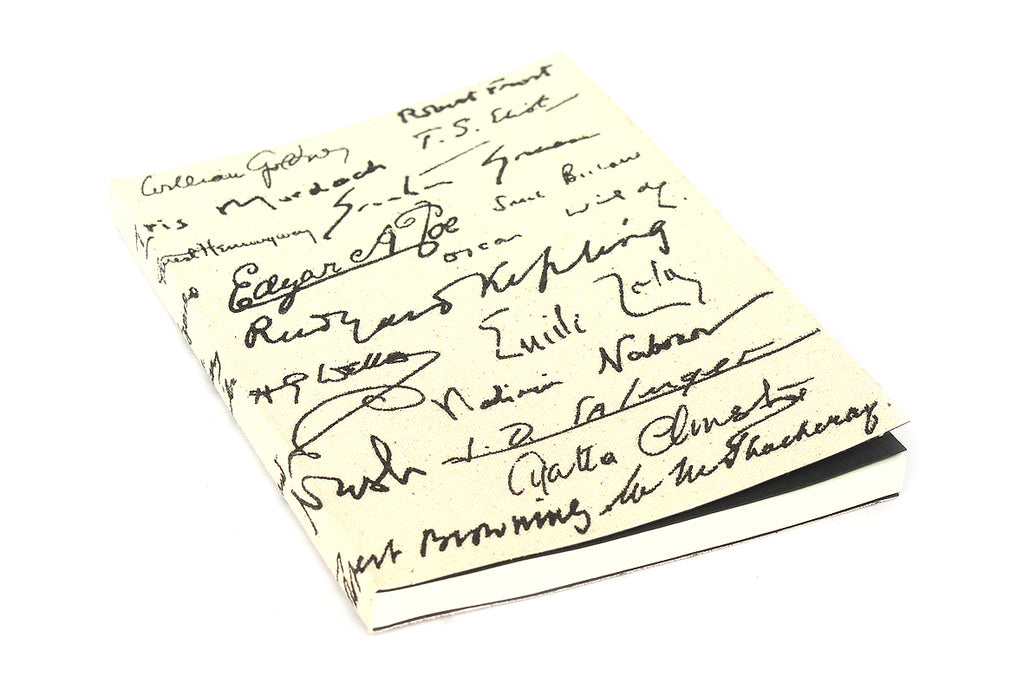 Robert Frost
William Golding
T. S. Eliot
Iris Murdoch
Graham Greene
Ernest Hemingway
Saul Bellow
Edgar A Poe
Oscar Wilde
Rudyard Kipling
Emile Zola
H G Wells
Vladimir Nabokov
J. D. Salinger
Agatha Christie
Browning W M Thackeray.